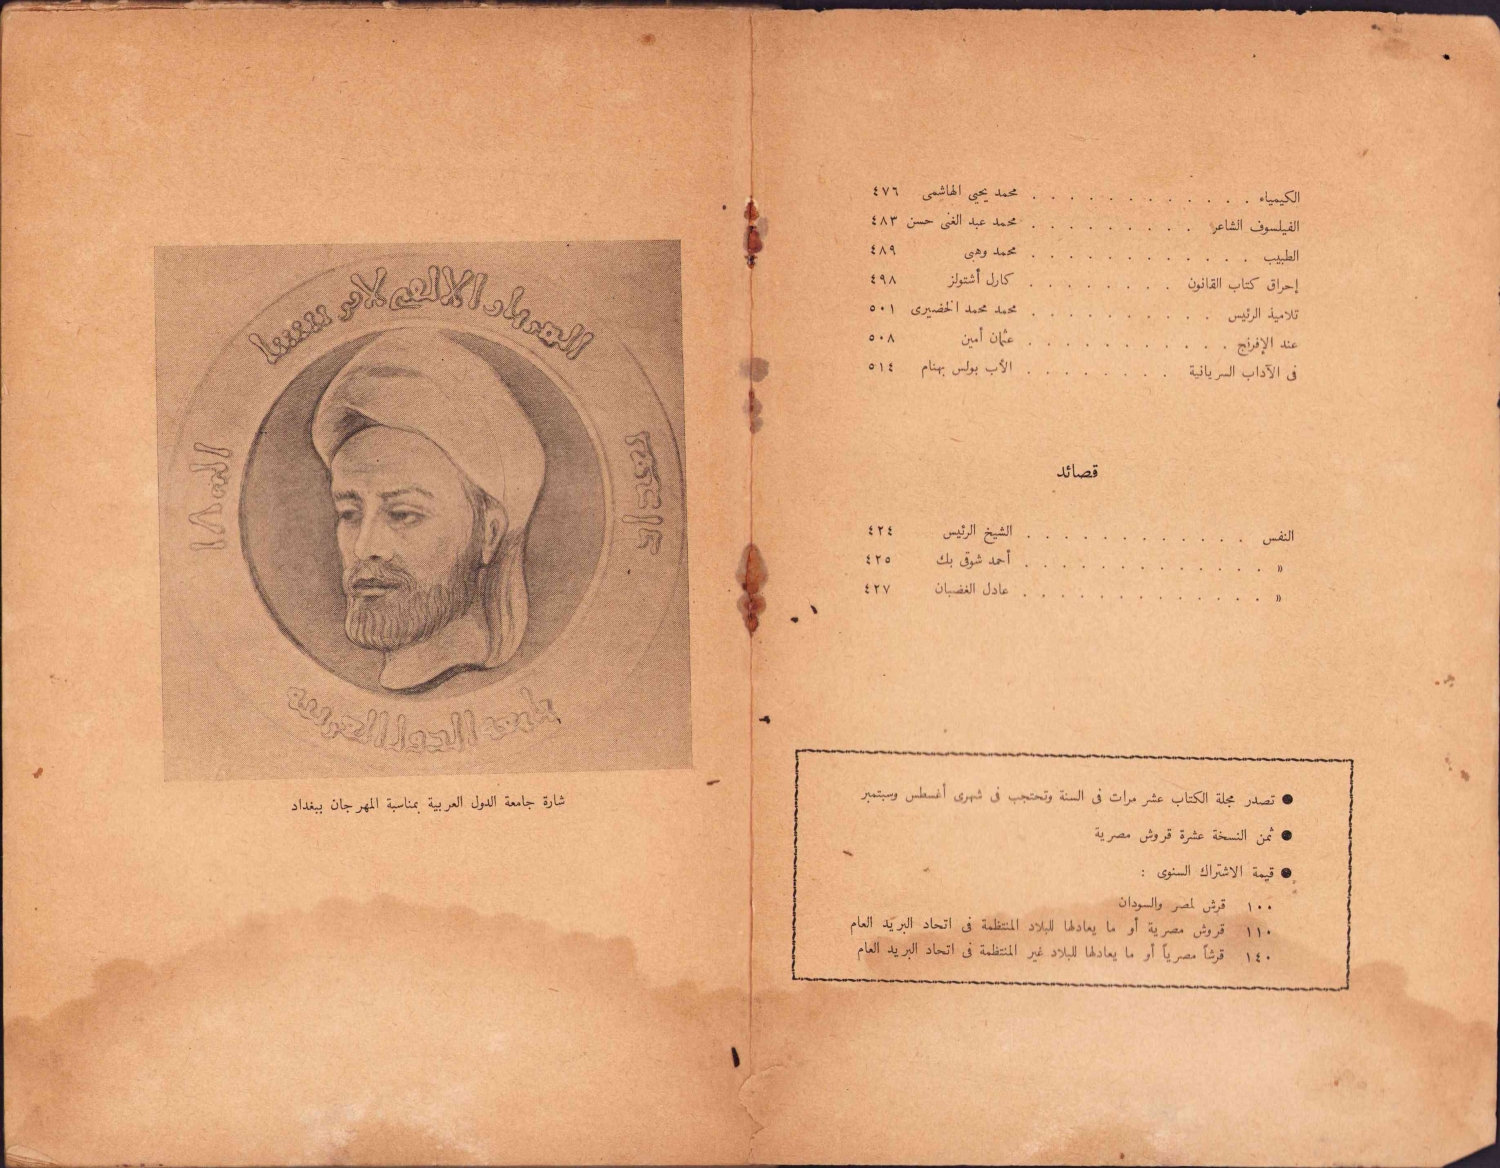 الكيمياء . . . . . . . . . . . . محمد يحيى الهاشمى ٤٧٦
الفيلسوف الشاعر . . . . . . . . . محمد عبد الغنى حسن ٤٨٣
الطبيب . . . . . . . . . . . . محمد وهبى ٤٨٩
إحراق كتاب القانون . . . . . . . . كارل أشتولز ٤٩٨
تلاميذ الرئيس . . . . . . . . . . محمد محمد الخضيرى ٥٠١
عند الإفرنج . . . . . . . . . . . عثمان أمين ٥٠٨
فى الآداب السريانية . . . . . . . . الأب بولس بهنام ٥١٤
قصائد
النفس . . . . . . . . . . . . الشيخ الرئيس ٤٢٤
» . . . . . . . . . . . . . أحمد شوقى بك ٤٢٥
» . . . . . . . . . . . . . عادل الغضبان ٤٢٧
● تصدر مجلة الكتاب عشر مرات فى السنة وتحتجب فى شهرى أغسطس وسبتمبر
● ثمن النسخة عشرة قروش مصرية
● قيمة الاشتراك السنوى :
١٠٠ قرش لمصر والسودان
١١٠ قروش مصرية أو ما يعادلها للبلاد المنتظمة فى اتحاد البريد العام
١٤٠ قرشاً مصرياً أو ما يعادلها للبلاد غير المنتظمة فى اتحاد البريد العام
المهرجان الألفى لابن سينا
بغداد
جامعة الدول العربية
شارة جامعة الدول العربية بمناسبة المهرجان ببغداد